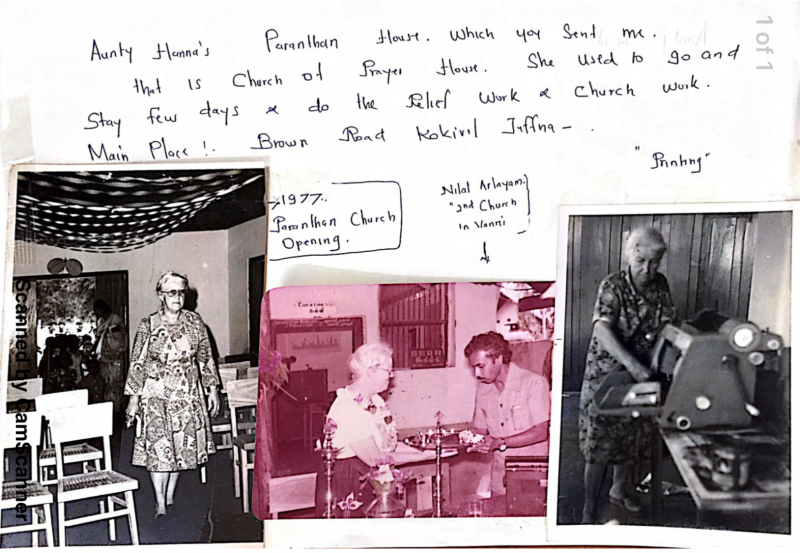 Aunty Hanna's Paranthan House. Which you Sent me.
that is Church of Prayer House. She used to go and
Stay few days & do the Relief Work & Church Work.
Main Place !. Brown Road Kokivil Jaffna - .
"Printing"
1977.
Paranthan Church
Opening.
Nilat Arlayam.
"2nd Church
in Vanni
Scanned by CamScanner
1 of 1